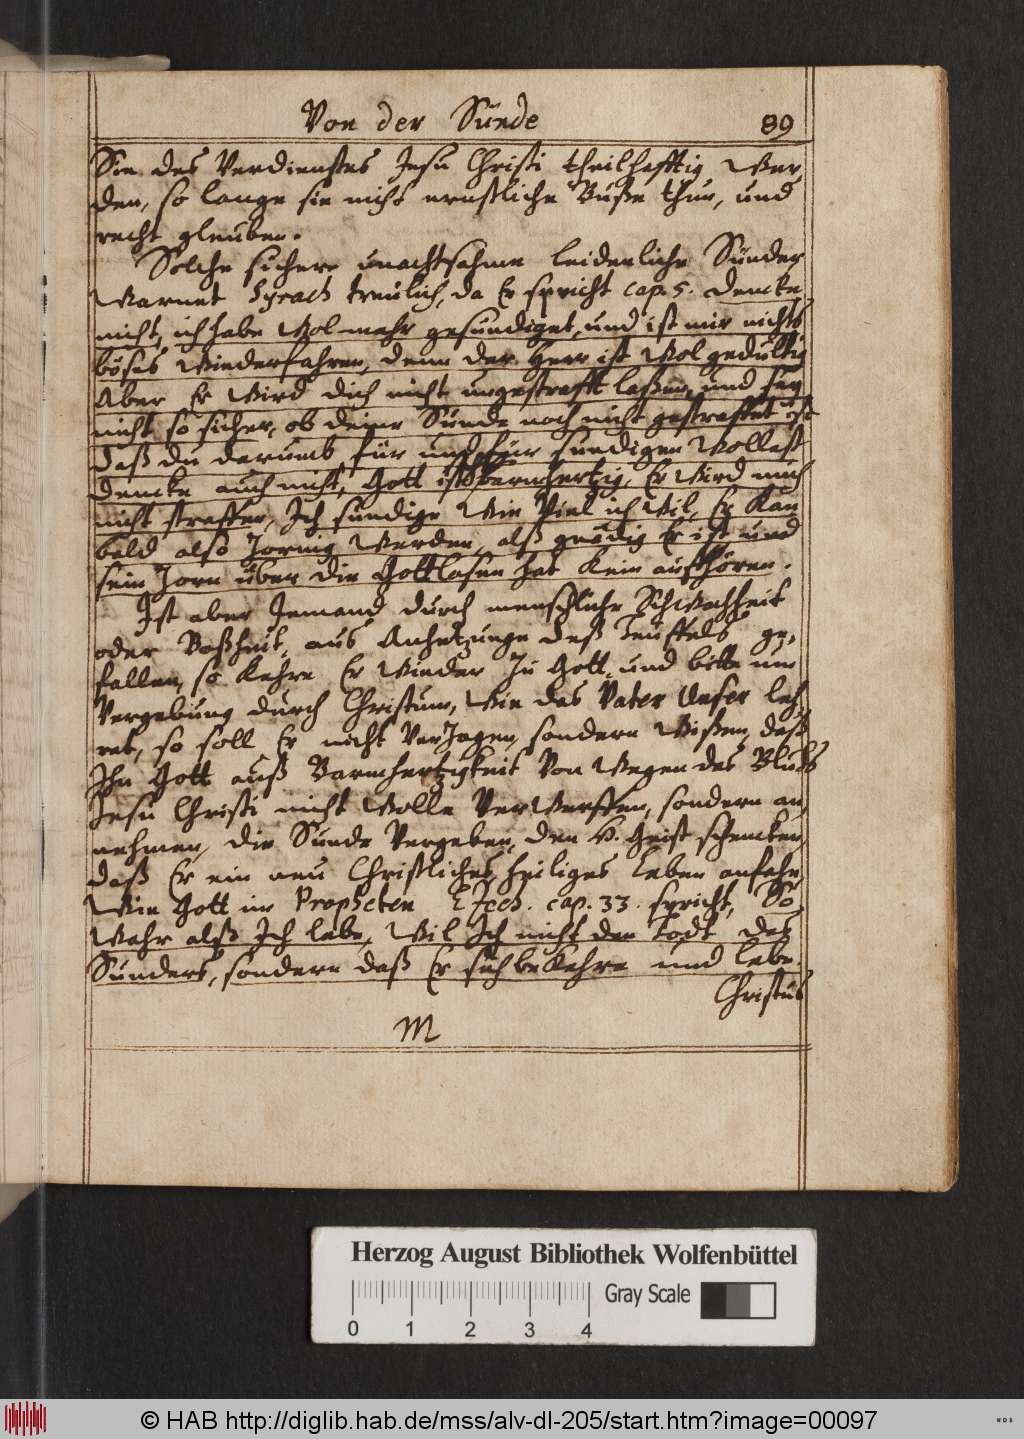 Von der Sünde 89
Sie des Verdienstes Jesu Christi theilhafftig Wer,
den, so lange sie nicht ernstliche Buße thun, und
recht gleuben.
Solche sichere unachtsahme leidenliche Sünder
Warnet Syrach treulich, da Er spricht cap. 5. Dencke
nicht, ich habe Wol mehr gesündiget, und ist mir nichts
böses Wiederfahren, denn der Herr ist Wol gedultig
Aber Er Wird dich nicht ungestrafft laßen, und sey
nicht so sicher, ob deine Sünde noch nicht gestraffet ist
daß du darumb für und für sundigen Woltest
dencke auch nicht, Gott ist barmhertzig, Er Wird mich
nicht straffen, Ich sündige Wie Viel ich Wil, Er Kan
bald also Zornig Werden, alß gnädig Er ist und
sein Zorn über die Gottlosen hat Kein auffhören.
Ist aber Jemand durch menschliche SchWachheit
oder Boßheit, aus Anhetzunge deß Teuffels ge,
fallen, so Kehre Er Wieder Zu Gott, und bitte um
Vergebung durch Christum, Wie das Vater Unser leh,
ret, so soll Er nicht VerZagen, sondern Wißen, daß
Ihn Gott auß Barmhertzigkeit Von Wegen des Bluts
Jesu Christi nicht Wolle VerWerffen, sondern an,
nehmen, die Sünde Vergeben, den H. Geist schencken,
daß Er ein neu Christliches, heiliges Leben anfahe,
Wie Gott im Propheten Ezech. cap. 33. spricht, So
Wahr alß Ich lebe, Wil Ich nicht den Todt des
Sünders, sondern daß Er sich beKehre und lebe.
Christus
M
Herzog August Bibliothek Wolfenbüttel
Gray Scale
0 1 2 3 4
© HAB http://diglib.hab.de/mss/alv-dl-205/start.htm?image=00097